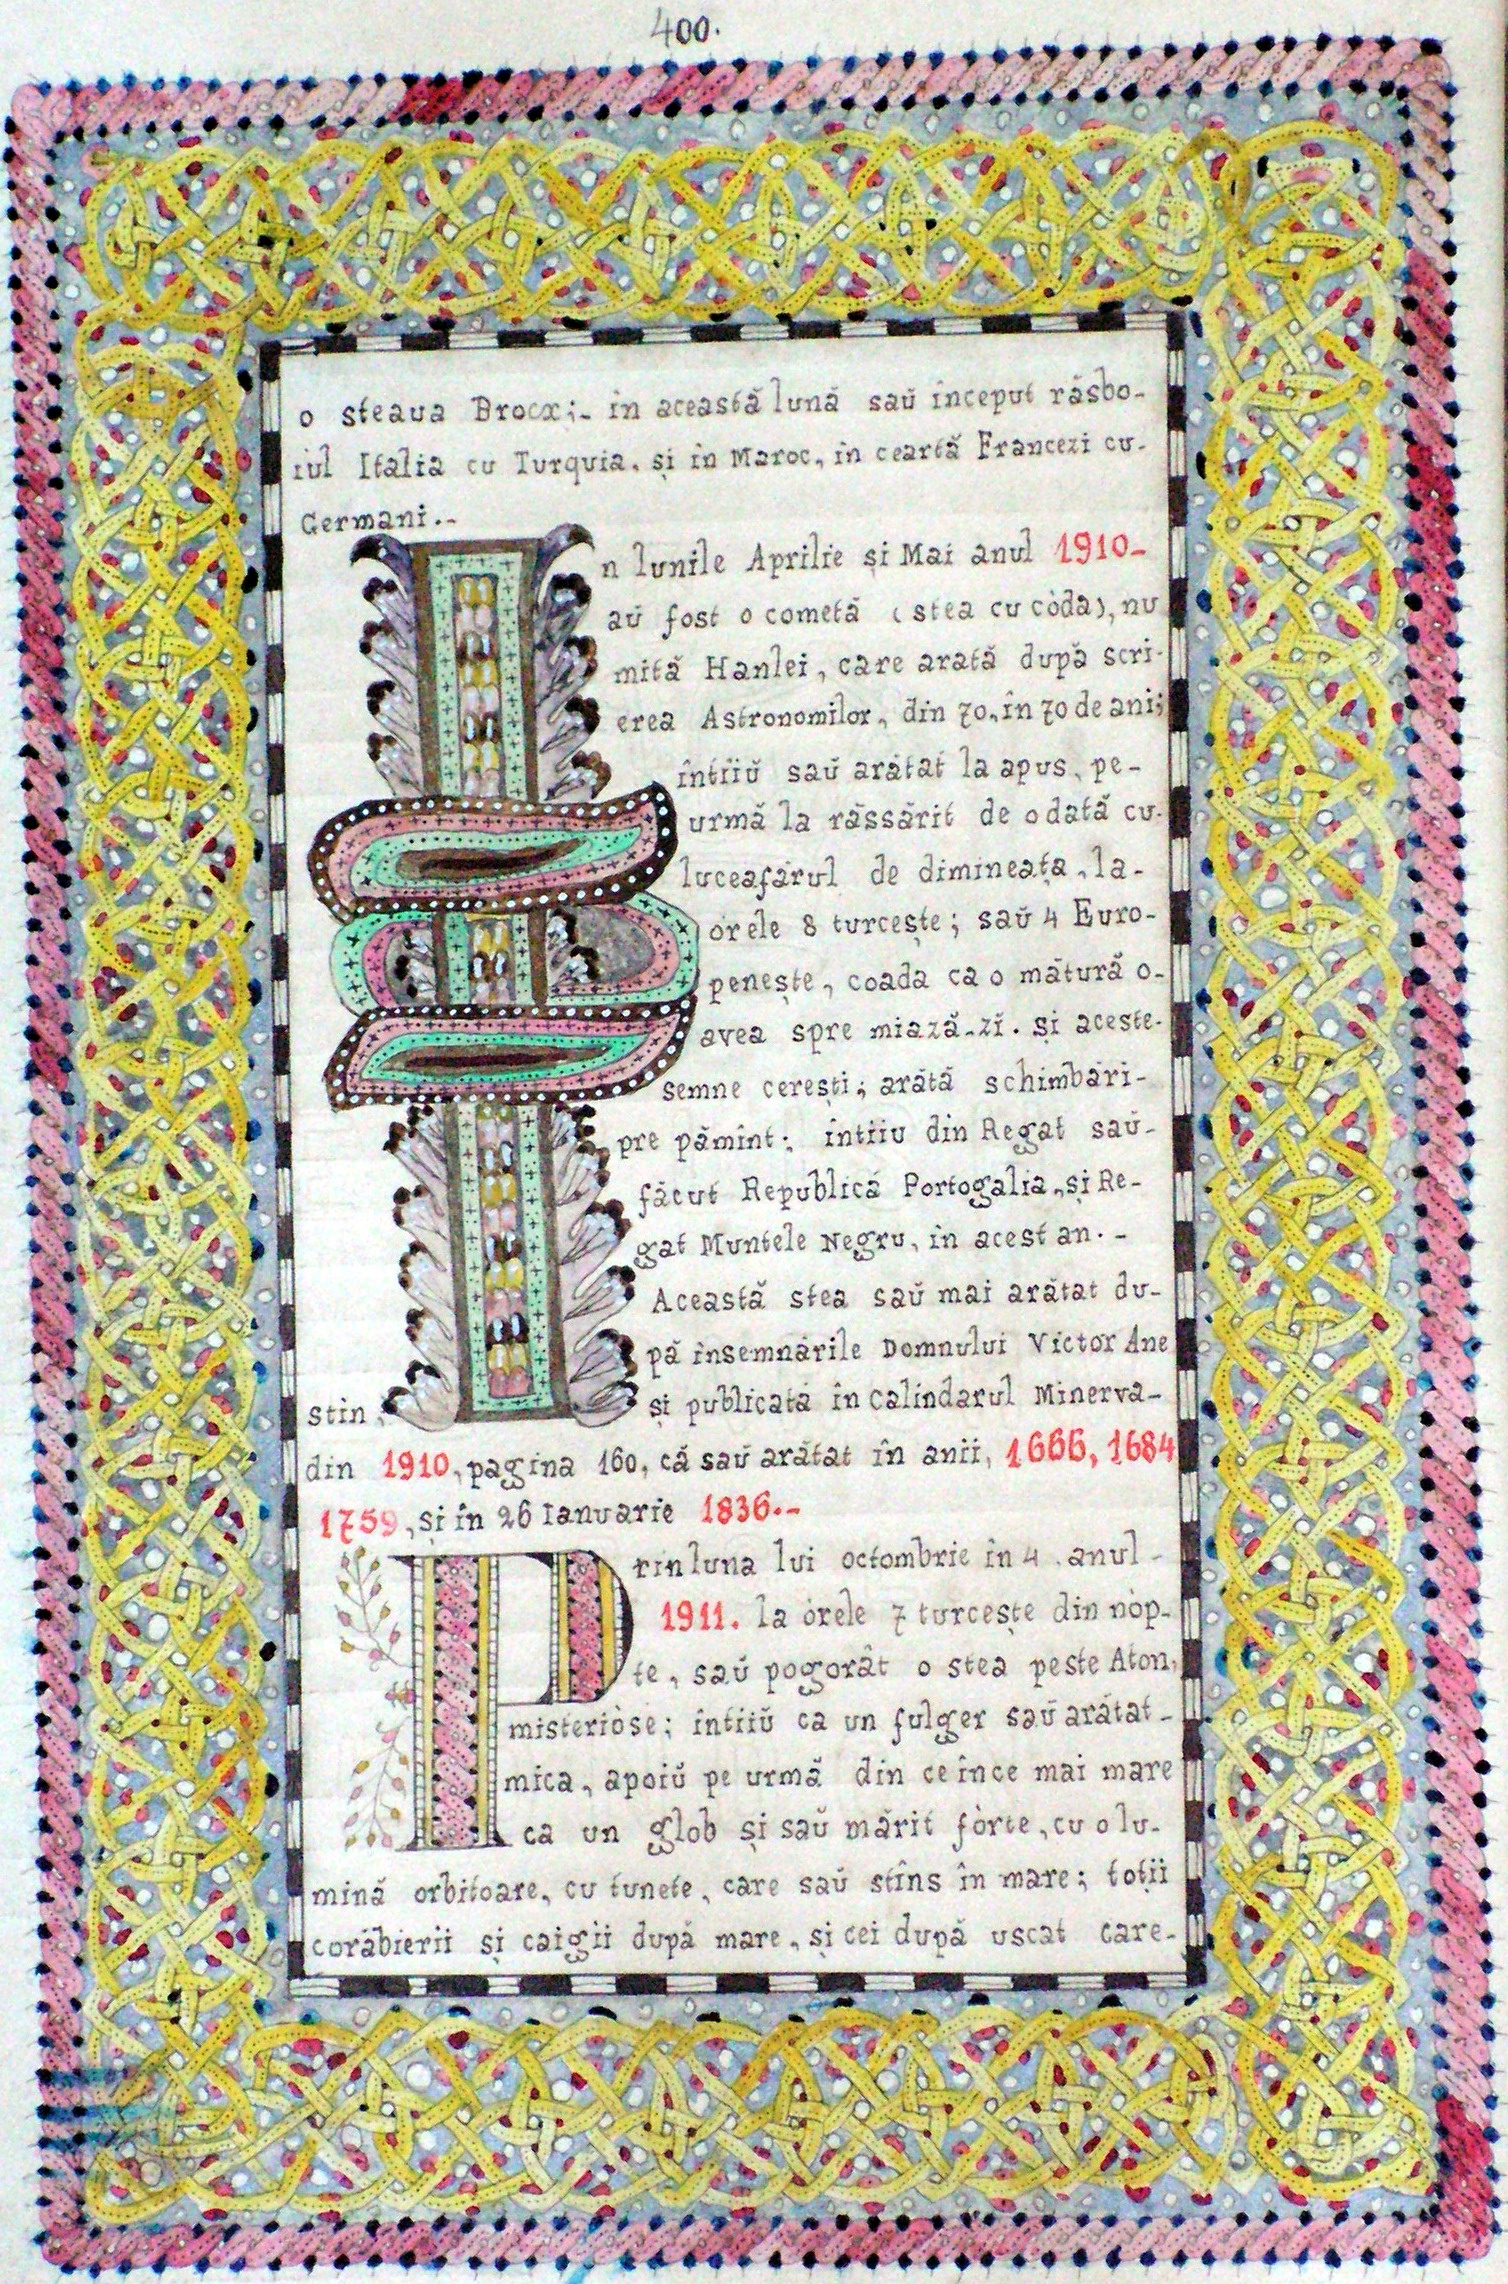 400.
o steaua Brocx;- in această lună saŭ început răsbo-
iul Italia cu Turquia. și în Maroc, în ceartă Francezi cu-
Germani.-
În lunile Aprilie și Mai anul 1910-
aŭ fost o cometă (stea cu còda), nu
mită Hanlei, care arată după scri-
erea Astronomilor, din 70, în 70 de ani;
întiiŭ saŭ arătat la apus, pe-
urmă la răssărit de odată cu-
luceafărul de dimineața, la-
orele 8 turcește; saŭ 4 Euro-
penește, coada ca o mătură o-
avea spre miază-zĭ. și aceste-
semne cerești; arătă schimbări-
pre pămînt: întiiu din Regat saŭ-
făcut Republică Portogalia, și Re-
gat Muntele Negru, in acest an.-
Această stea saŭ mai arătat du-
pă însemnările Domnului Victor Ane
stin, și publicată în Calindarul Minerva-
din 1910, pagina 160, că saŭ arătat în anii, 1666, 1684
1759, și în 26 Ianuarie 1836.-
Prin luna lui octombrie în 4 . anul-
1911. la òrele 7 turcește din nòp-
te, saŭ pogorât o stea peste Aton,
misteriòse; întiiŭ ca un fulger saŭ arătat-
mica, apoiŭ pe urmă din ce înce mai mare
ca un glob și saŭ mărit fòrte, cu o lu-
mină orbitoare, cu tunete, care saŭ stîns în mare; toții
corăbierii și caigii după mare, și cei după uscat care-